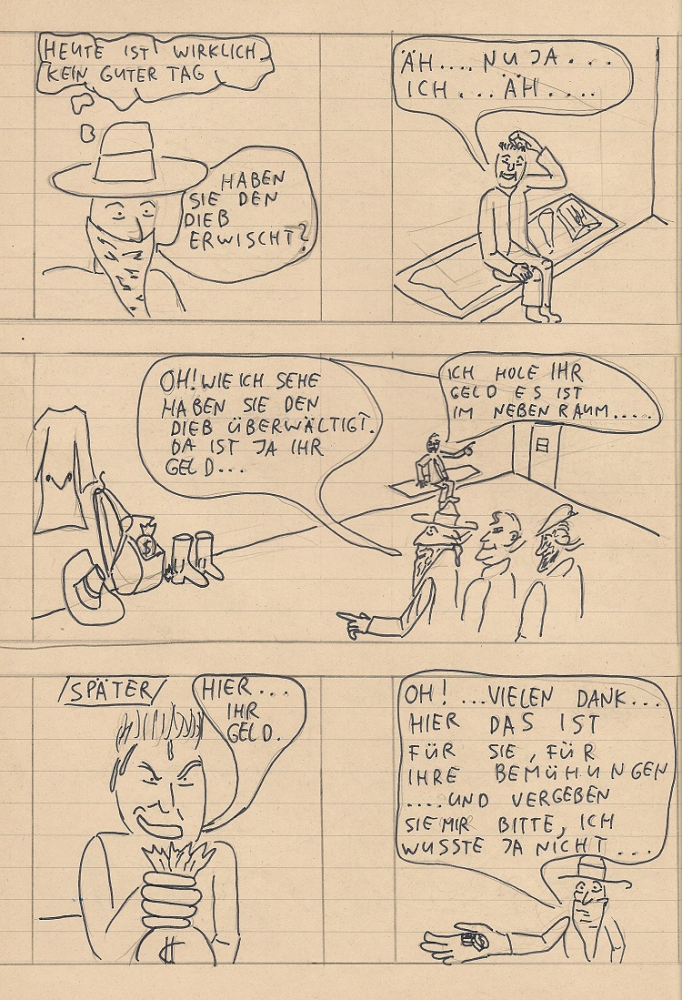 HEUTE IST WIRKLICH
KEIN GUTER TAG
HABEN
SIE DEN
DIEB
ERWISCHT?
ÄH.... NU JA...
ICH....ÄH....
OH! WIE ICH SEHE
HABEN SIE DEN
DIEB ÜBERWÄLTIGT.
DA IST JA IHR
GELD...
ICH HOLE IHR
GELD ES IST
IM NEBENRAUM.....
$
/SPÄTER/
HIER...
IHR
GELD.
OH! ...VIELEN DANK...
HIER DAS IST
FÜR SIE, FÜR
IHRE BEMÜHUNGEN
....UND VERGEBEN
SIE MIR BITTE, ICH
WUSSTE JA NICHT...